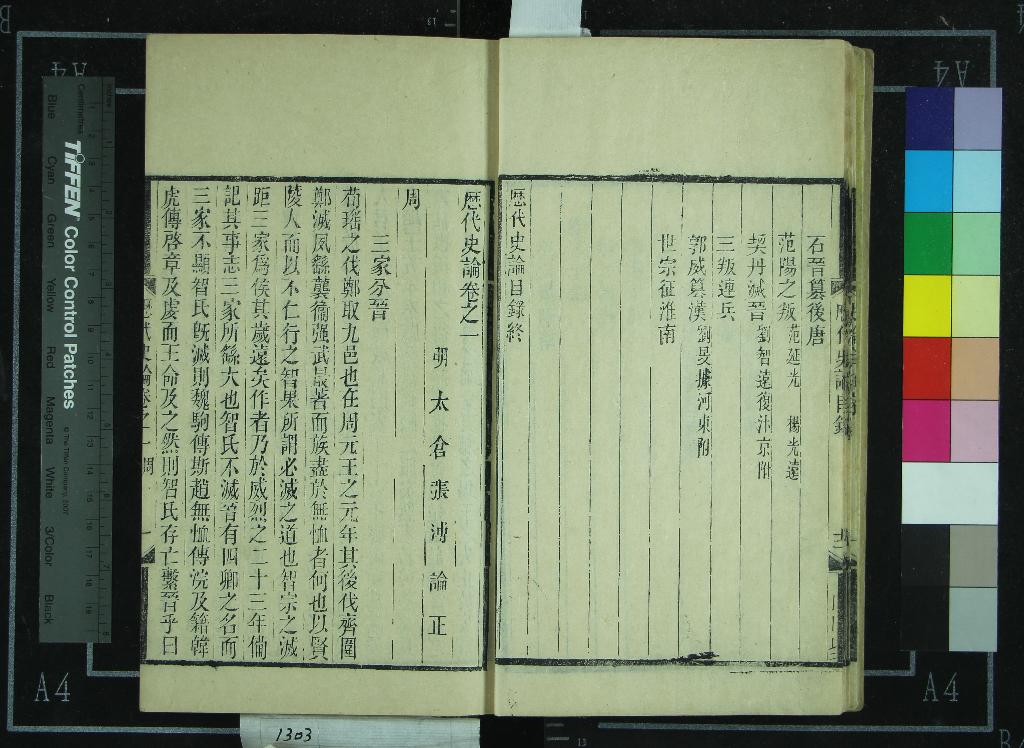 石晉篡後唐
范陽之叛 范延光 楊光遠
契丹滅晉 劉智遠復汴京附
三叛連兵
郭威篡漢 劉旻據河東附
世宗征淮南
歷代史論目錄終
歷代史論卷之一
明太倉張溥論正
周
三家分晉
荀瑤之伐鄭取九邑也在周元王之元年其後伐齊圍
鄭滅夙繇襲衞强武最著而族盡於無恤者何也以賢
陵人而以不仁行之智果所謂必滅之道也智宗之滅
距三家爲侯其歲遠矣作者乃於威烈之二十三年備
記其事志三家所繇大也智氏不滅晉有四卿之名而
三家不顯智氏旣滅則魏駒傳斯趙無恤傳浣及籍韓
虎傳啓章及虔而王命及之然則智氏存亡繫晉乎曰
TIFFEN Color Control Patches
© The Tiffen Company, 2007
Centimetres
Inches
Blue
Cyan
Green
Yellow
Red
Magenta
White
3/Color
Black
A4
A4
A4
A4
1303